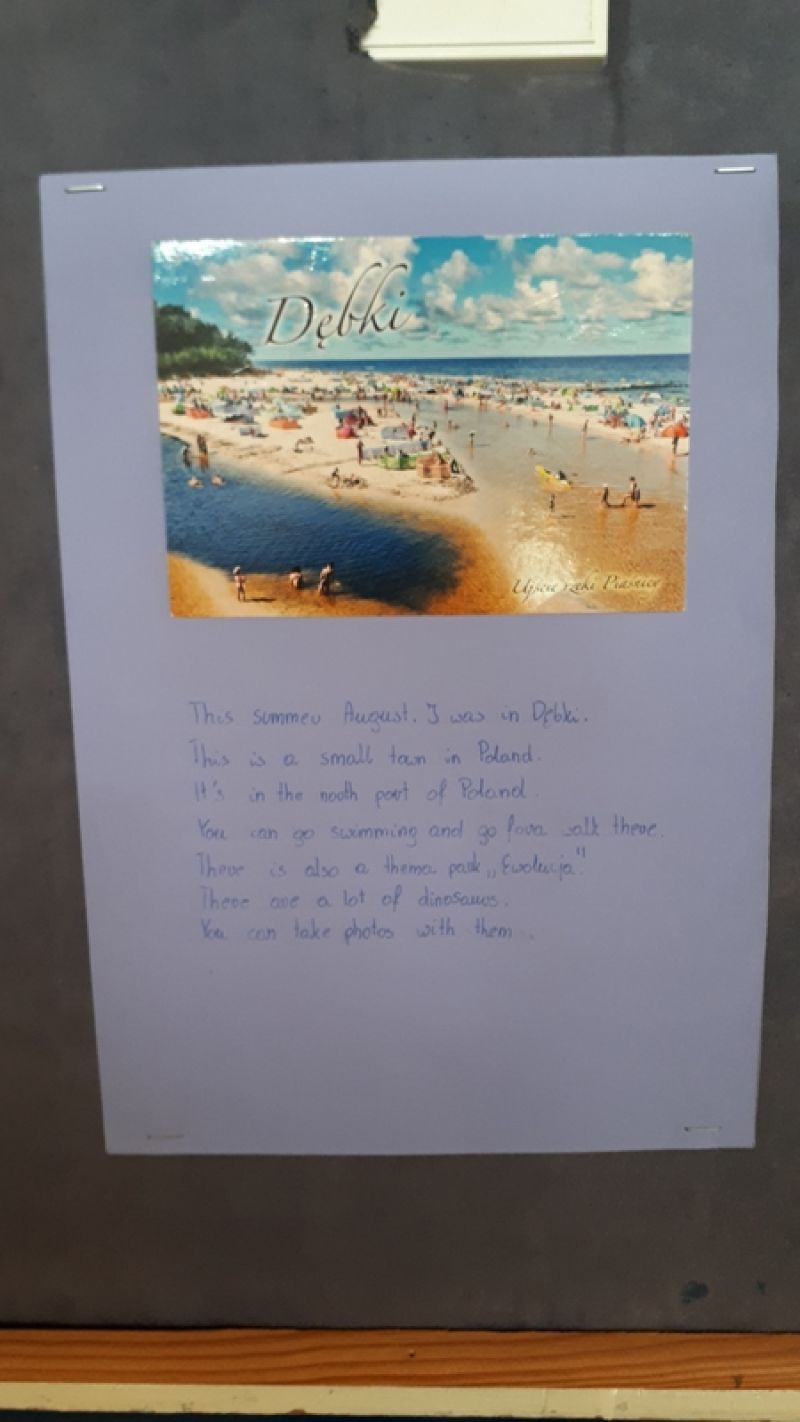 Dębki
Ujście rzeki Piaśnicy
This summer August. I was in Dębki.
This is a small town in Poland.
It's in the north part of Poland.
You can go swimming and go for a walk there.
There is also a thema park „Ewolucja"
There are a lot of dinosaurs.
You can take photos with them.